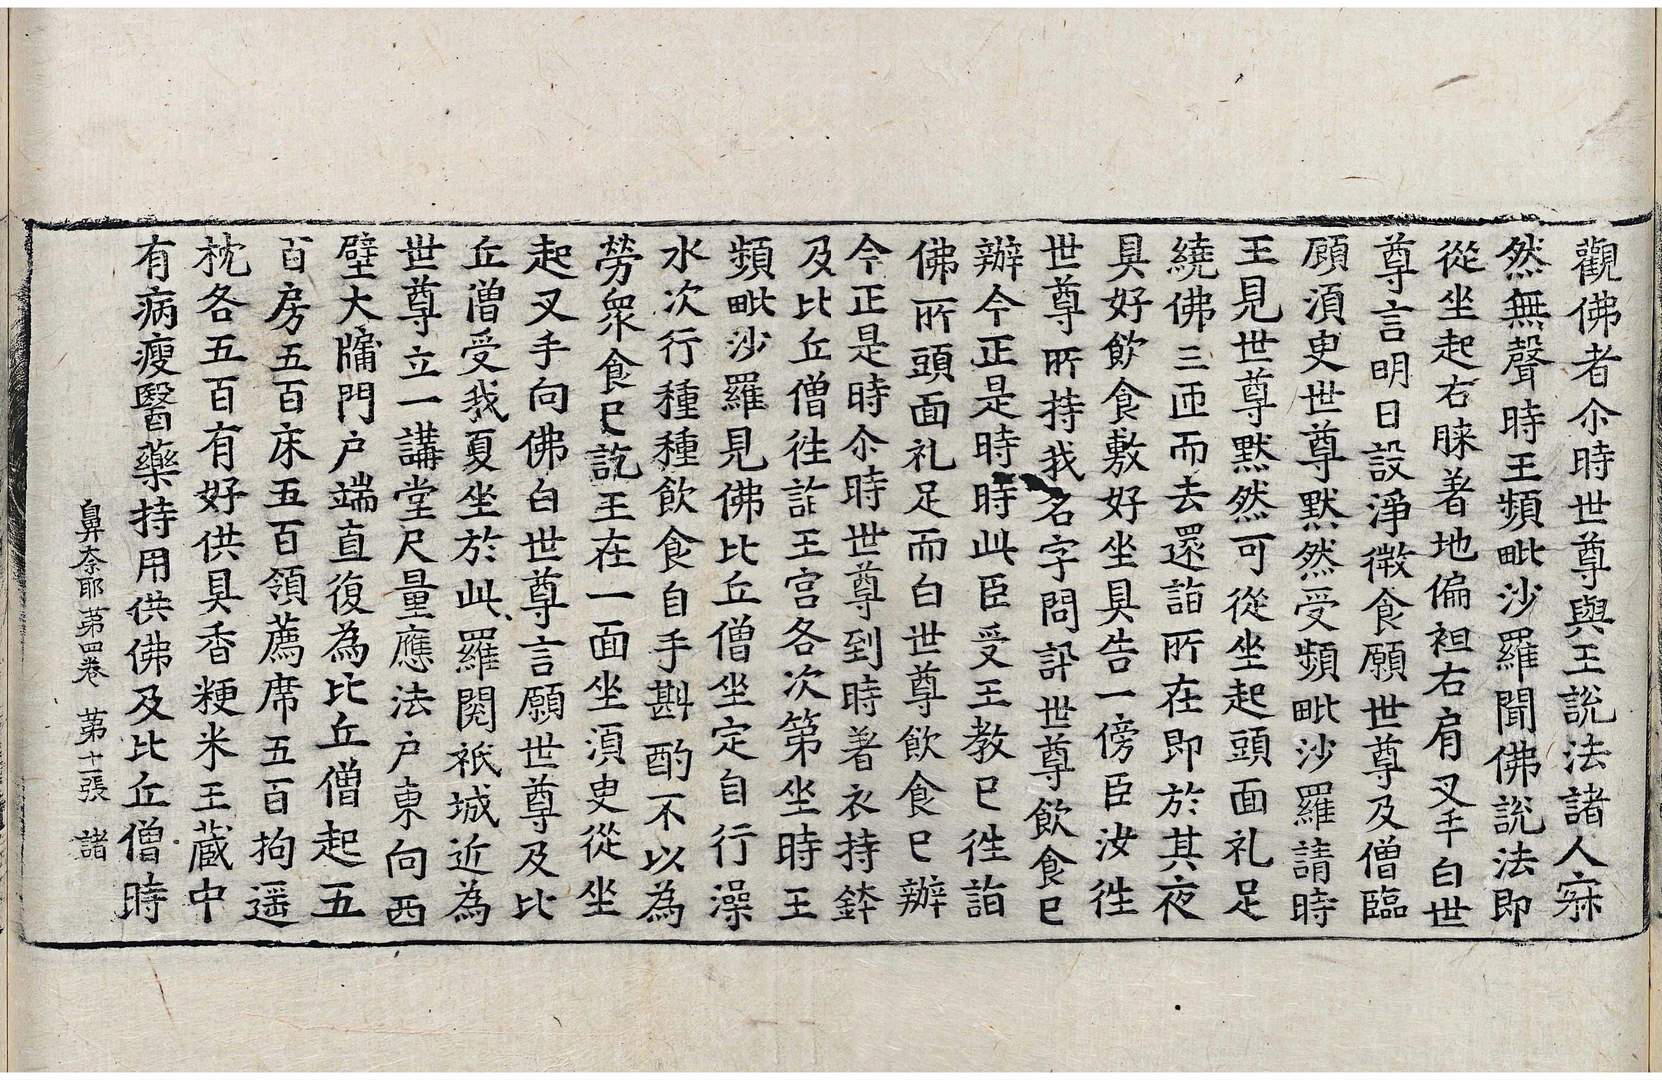 觀佛者尒時世尊與王說法諸人寂
然無聲時王頻毗沙羅聞佛說法即
從坐起右膝著地偏袒右肩叉手白世
尊言明日設淨微食願世尊及僧臨
顧湏臾世尊默然受頻毗沙羅請時
王見世尊默然可從坐起頭面礼足
繞佛三匝而去還詣所在即於其夜
具好飲食敷好坐具告一傍臣汝徃
世尊所持我名字問訊世尊飲食已
辦今正是時時此臣受王教已徃詣
佛所頭面礼足而白世尊飲食已辦
今正是時尒時世尊到時著衣持鉢
及比丘僧徃詣王宮各次第坐時王
頻毗沙羅見佛比丘僧坐定自行澡
水次行種種飲食自手斟酌不以為
勞衆食已訖王在一面坐湏臾從坐
起叉手向佛白世尊言願世尊及比
丘僧受我夏坐於此羅閱祇城近為
世尊立一講堂尺量應法户東向西
壁大牗門户端直復為比丘僧起五
百房五百床五百領薦席五百拘遥
枕各五百有好供具香粳米王藏中
有病瘦醫藥持用供佛及比丘僧時
鼻奈耶第四卷 第十一張 諸